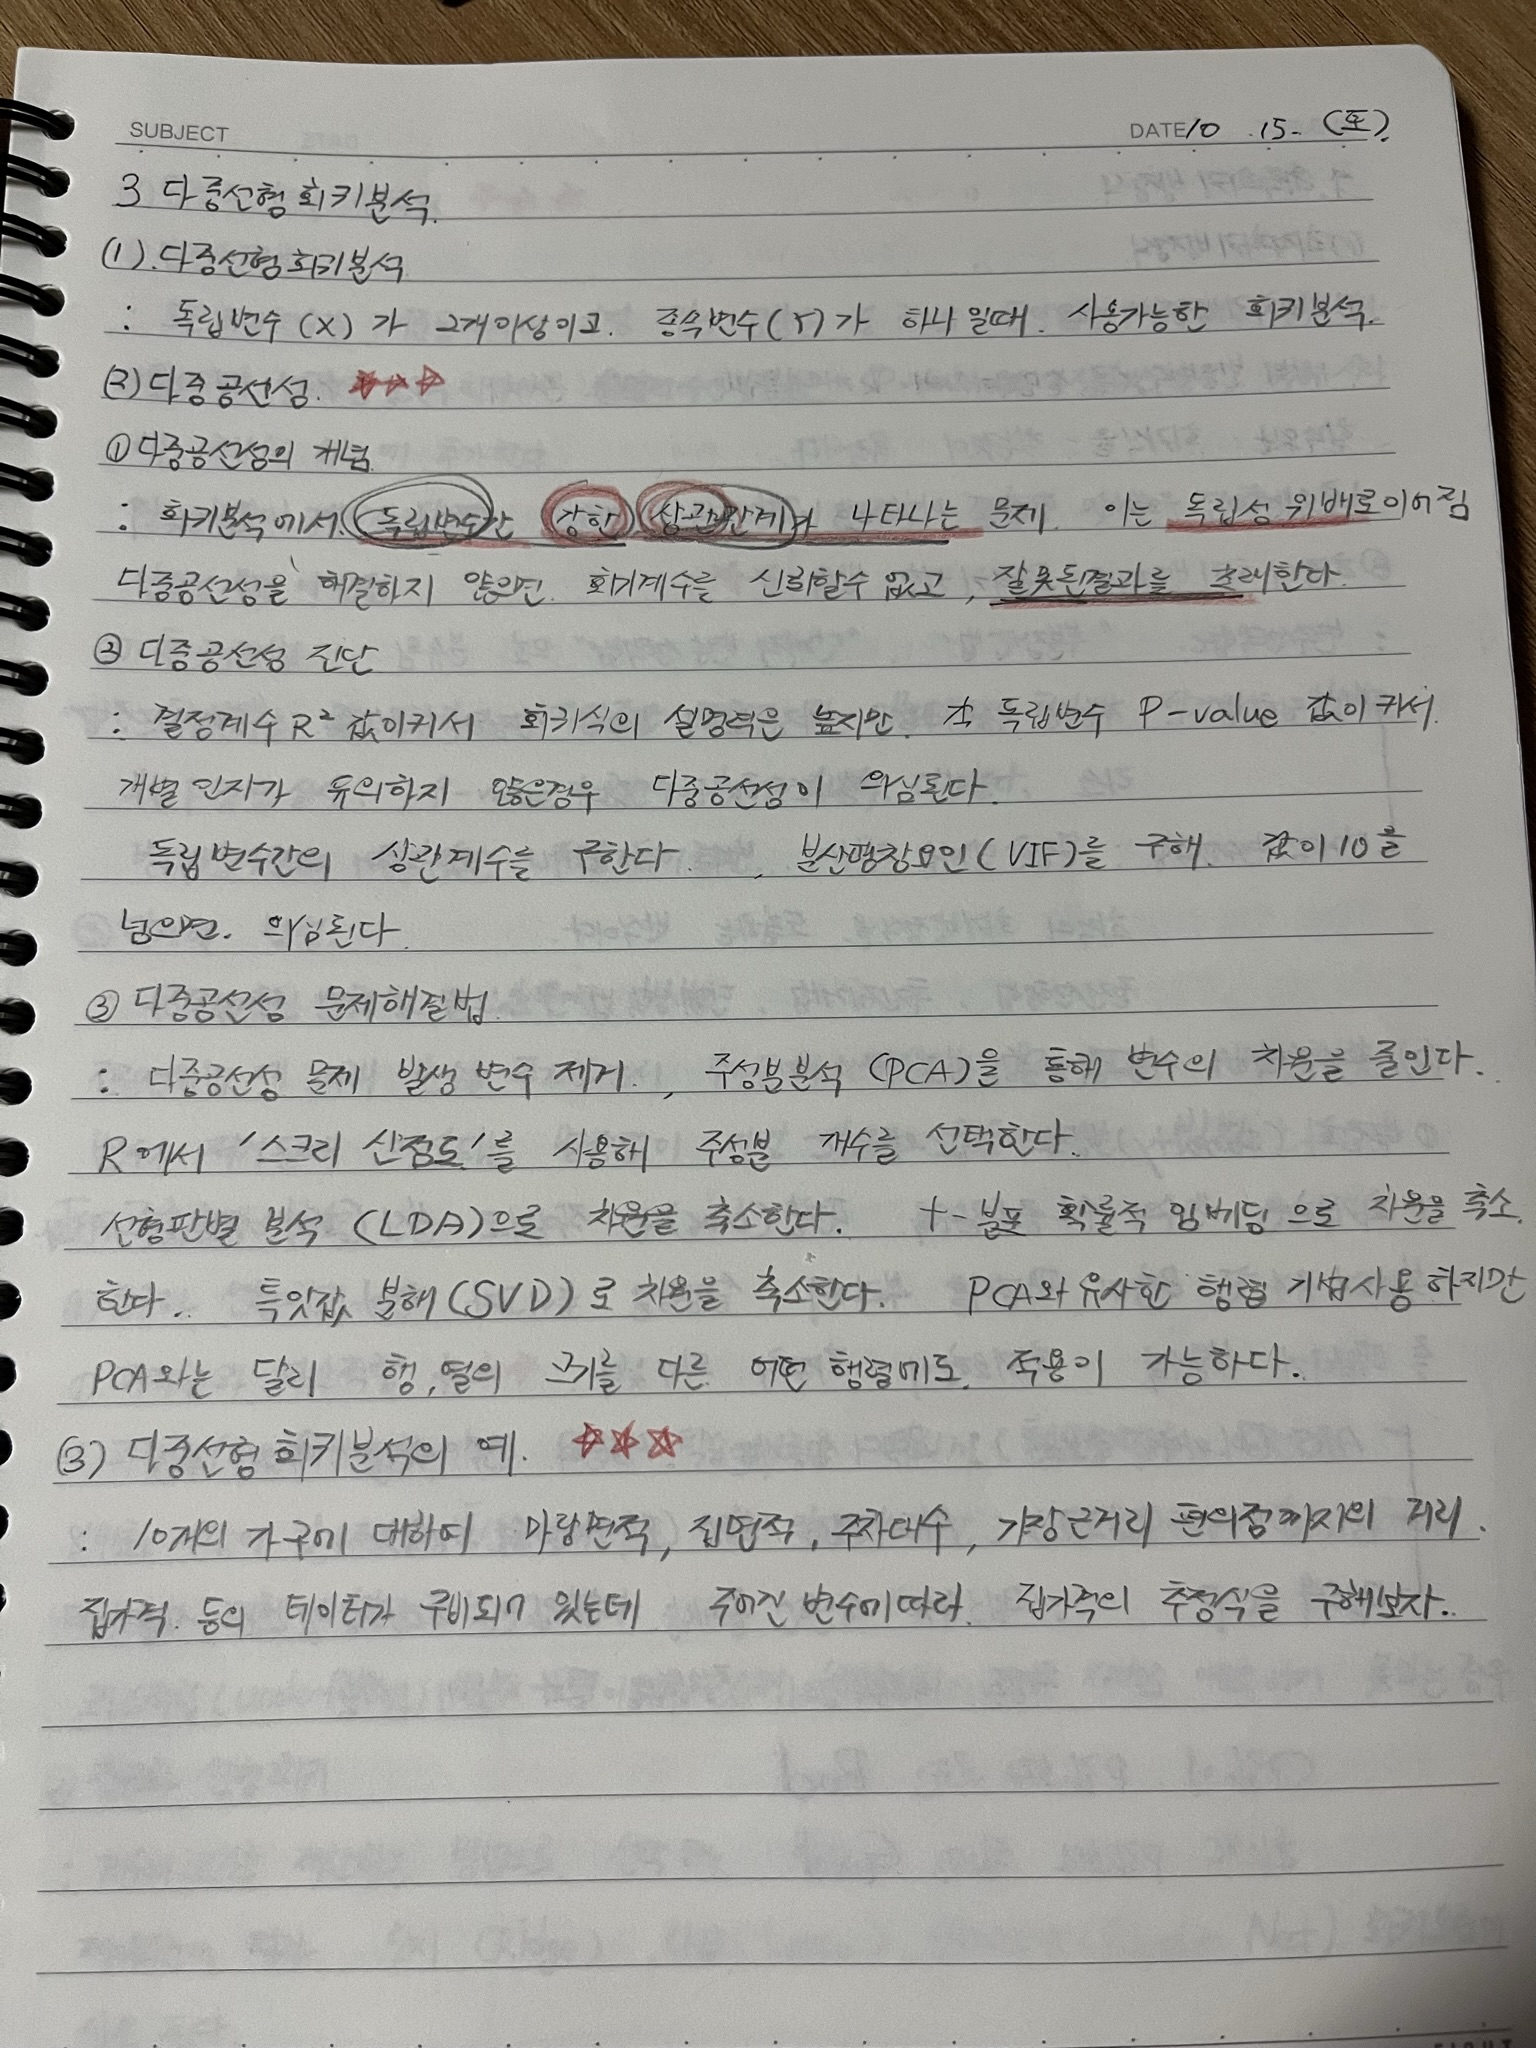 SUBJECT
DATE 10 . 15. (토).
3 다중선형 회키분석.
(1). 다중선형 회키분석
: 독립변수 (X) 가 2개이상이고. 종속변수(Y)가 하나 일때. 사용가능한 회키분석.
(2) 다중공선성. ☆☆☆
① 다중공선성의 개념.
: 회키분석에서. 독립변수간 강한 상관관계가 나타나는 문제. 이는 독립성 위배로이어짐
다중공선성을 해결하지 않으면. 회귀계수를 신뢰할수 없고, 잘못된결과를 초래한다.
② 다중공선성 진단
: 결정계수 R² 값이커서 회키식의 설명력은 높지만. 각 독립변수 P-value 값이 커서.
개별 인자가 유의하지 않은경우 다중공선성이 의심된다.
독립변수간의 상관계수를 구한다. , 분산팽창요인(VIF)를 구해. 값이 10을
넘으면. 의심된다.
③ 다중공선성 문제해결법.
: 다중공선성 문제 발생 변수 제거. , 주성분분석 (PCA)을 통해 변수의 차원을 줄인다.
R에서 '스크리 산점도'를 사용해 주성분 개수를 선택한다.
선형판별 분석 (LDA)으로 차원을 축소한다. t-분포 확률적 임베딩으로 차원을 축소.
한다.. 특잇값 분해(SVD)로 차원을 축소한다. PCA와 유사한 행렬 기법사용 하지만
PCA와는 달리 행, 열의 크기를 다른 어떤 행렬에도. 적용이 가능하다.
(3) 다중선형 회키분석의 예. ☆☆☆
: 10개의 가구에 대하여 마당면적, 집면적, 주차대수, 가장근거리 편의점까지의 거리.
집가격. 등의 데이터가 구비되어 있는데 주어진 변수에따라. 집가격의 추정식을 구해보자..